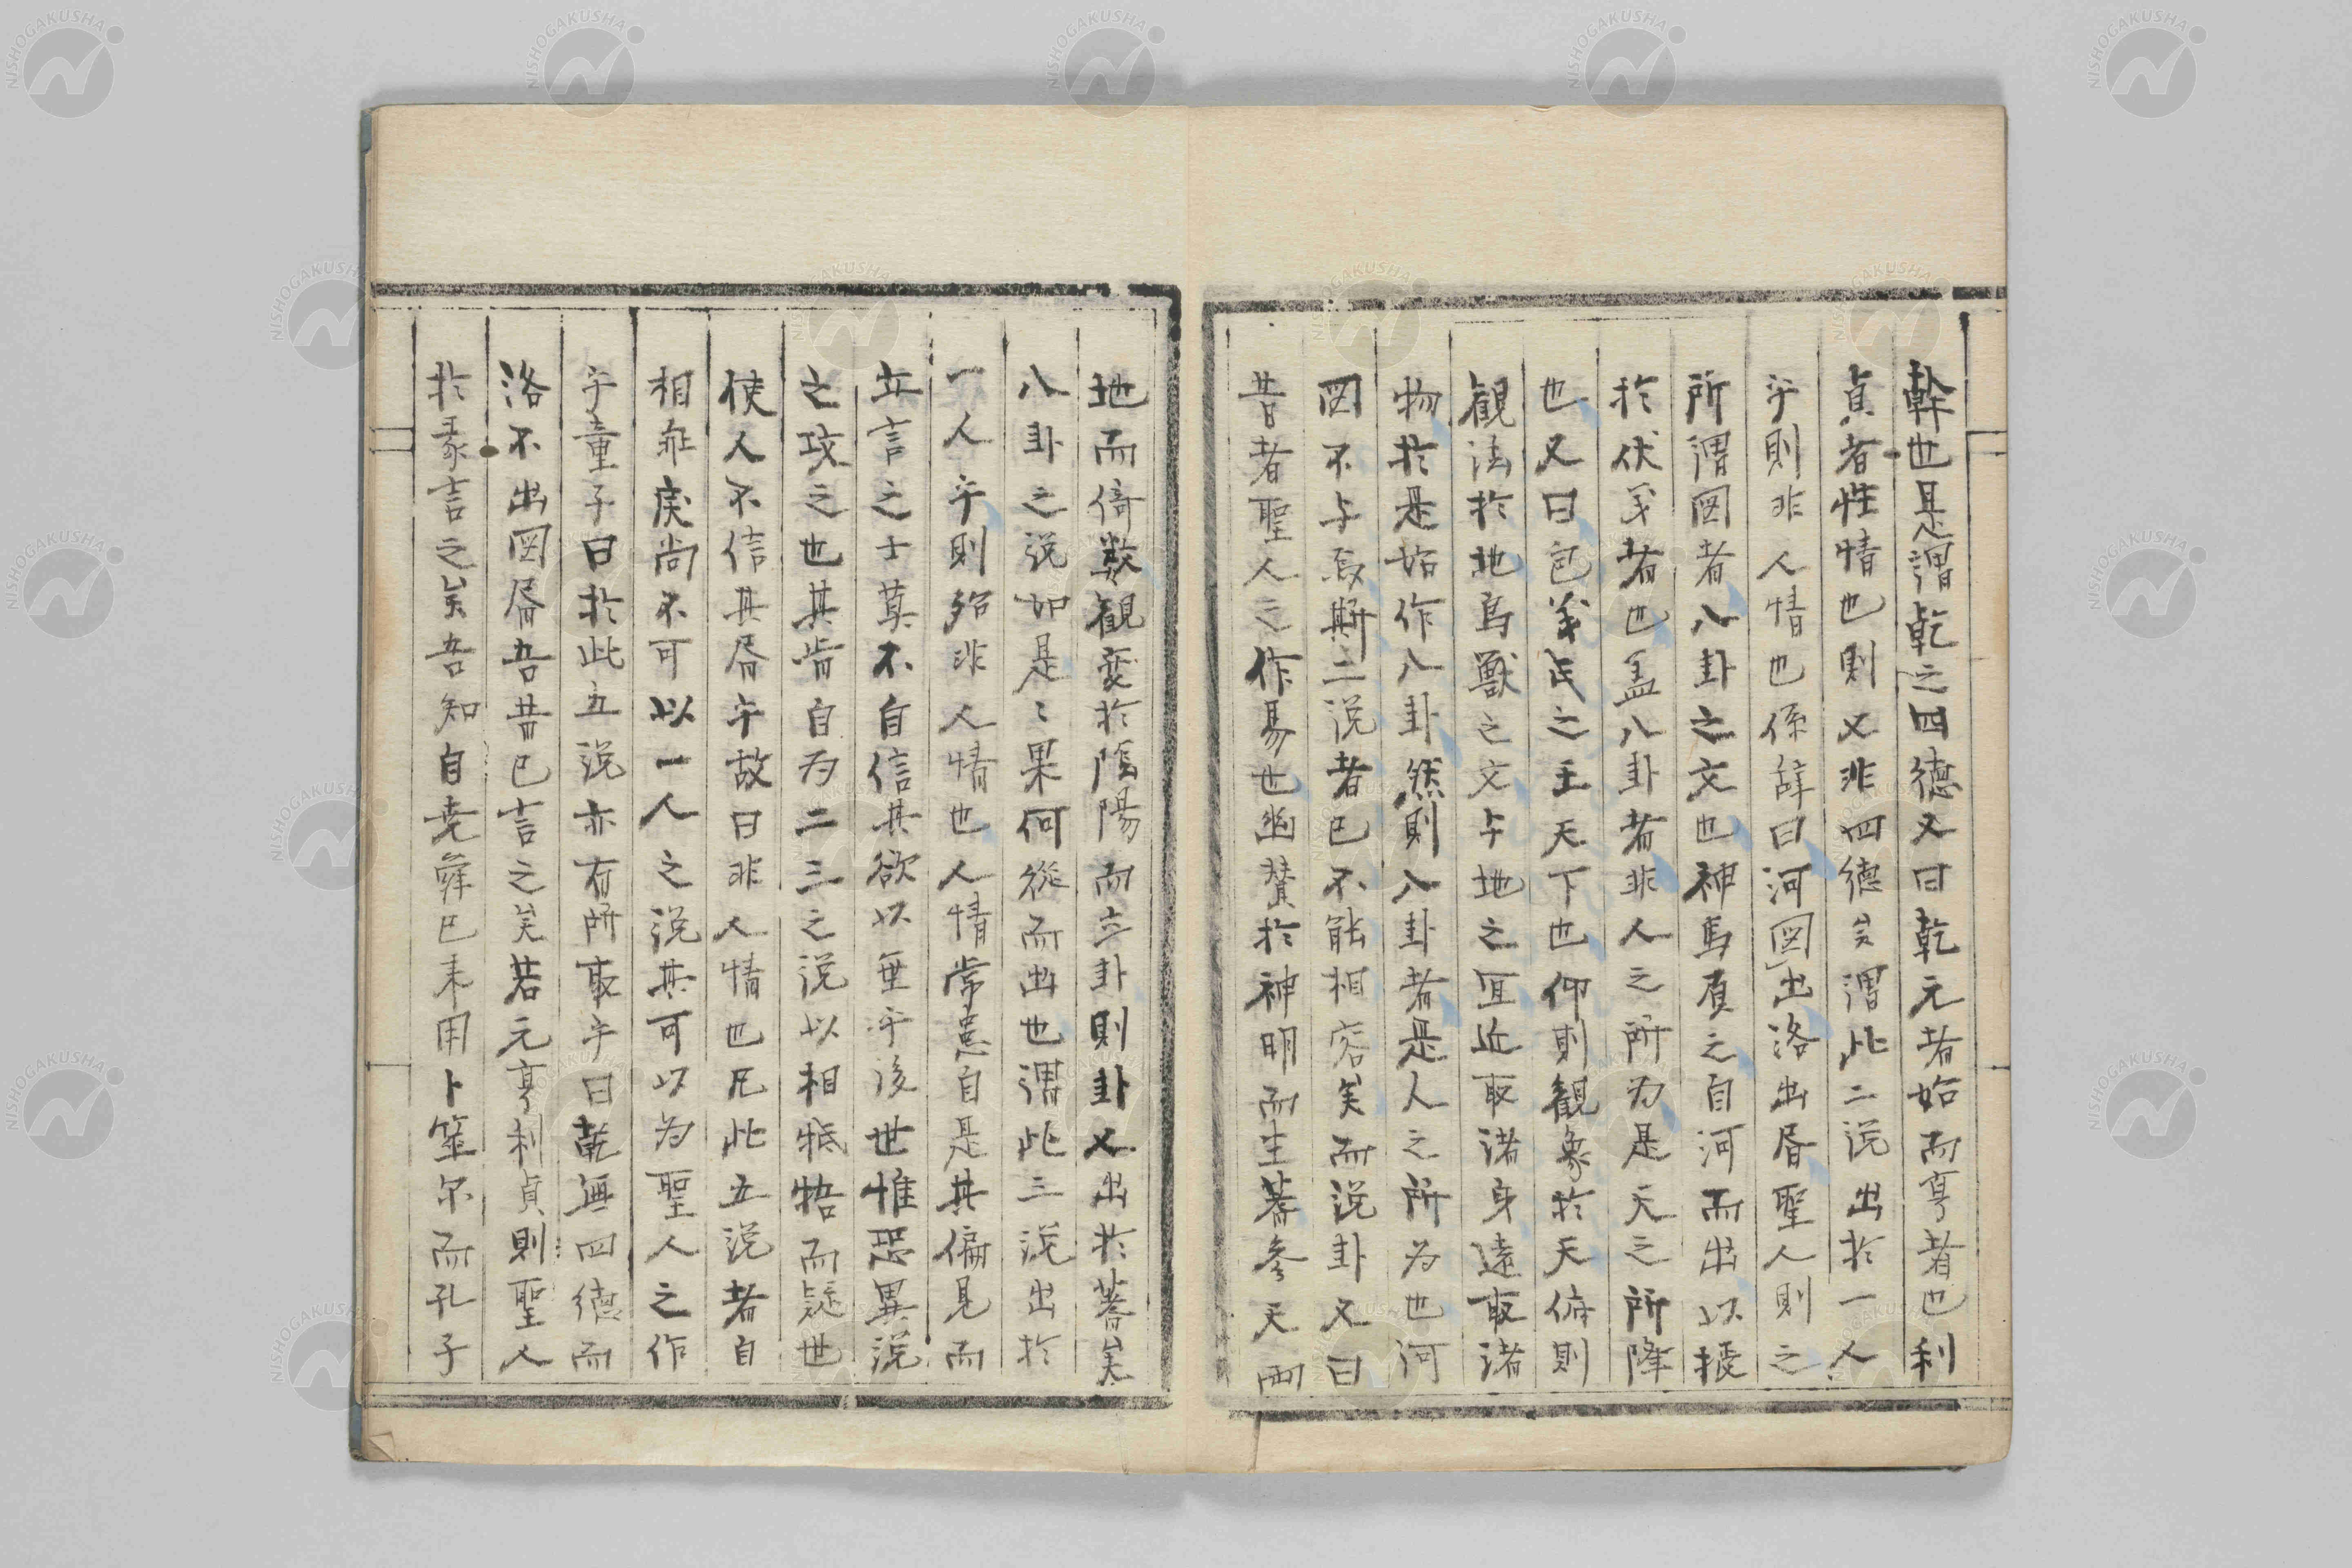 幹也是謂乾之四德又曰乾元者始而亨者也利
貞者性情也則又非四德矣謂此二説出於一人
乎則非人情也係辞曰河図出洛出昏聖人則之
所謂図者八卦之文也神馬負之自河而出以授
於伏羲者也盖八卦者非人之所为是天之所降
也又曰包羲氏之王天下也仰則観象於天俯則
観法於地鳥獣之文与地之宜近取诸身遠取诸
物於是始作八卦然則八卦者是人之所为也河
図不与焉斯二説者已不能相容矣而説卦又曰
昔者聖人之作易也幽賛於神明而生蓍参天両
地而倚数観変於陰陽而立卦則卦又出於蓍矣
八卦之説如是々果何從而出也謂此三説出於
一人乎則殆非人情也人情常患自是其偏見而
立言之士莫不自信其欲以垂乎後世惟恐異説
之攻之也其肯自为二三之説以相牴牾而疑世
使人不信其昏乎故曰非人情也凡此五説者自
相乖戻尚不可以一人之説其可以为聖人之作
乎童子曰於此五説亦有所取乎曰乾無四德而
洛不出図昏吾昔已言之矣若元亨利貞則聖人
於彖言之矣吾知自尭舜已来用卜筮尔而孔子
NISHOGAKUSHA